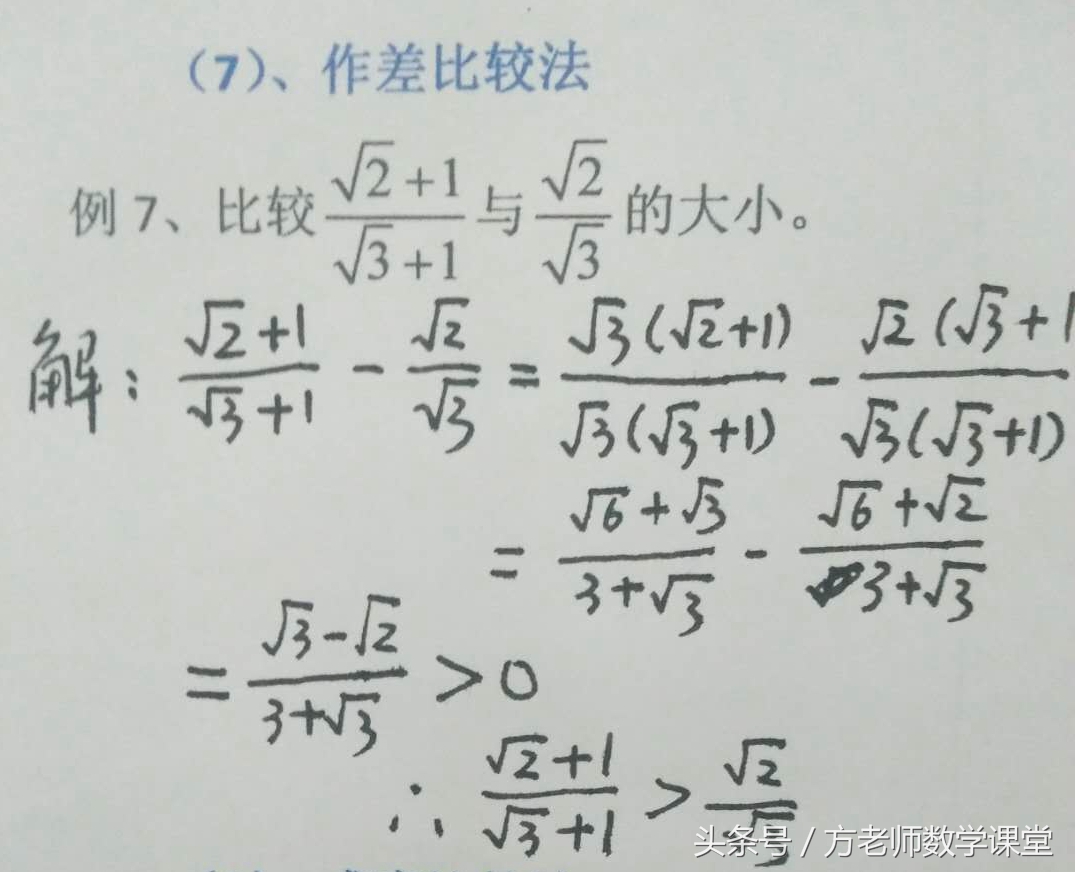 （7）、作差比较法
例 7、比较 (√2+1)/(√3+1) 与 √2/√3 的大小。
解：(√2+1)/(√3+1) - √2/√3 = √3(√2+1)/√3(√3+1) - √2(√3+1/√3(√3+1)
= (√6+√3)/(3+√3) - (√6+√2)/(3+√3)
= (√3-√2)/(3+√3) >0
∴ (√2+1)/(√3+1) > √2/√3
头条号 / 方老师数学课堂